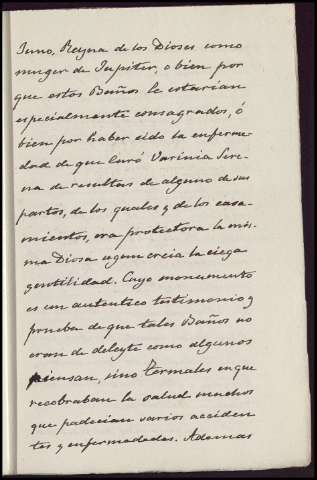 Juno, Reyna de los Dioses como
muger de Jupiter, o bien por
que estos Baños le estarian
especialmente consagrados, ó
bien por haber sido la enferme-
dad de que curó Varinia Sere-
na de resultas de alguno de sus
partos, de los quales y de los casa-
mientos, era protectora la mis-
ma Diosa segun creia la ciega
gentilidad. Cuyo monumento
es un autentico testimonio y
prueba de que tales Baños no
eran de deleyte como algunos
piensan, sino termales en que
recobraban la salud muchos
que padecian varios acciden
tes y enfermedades. Ademas